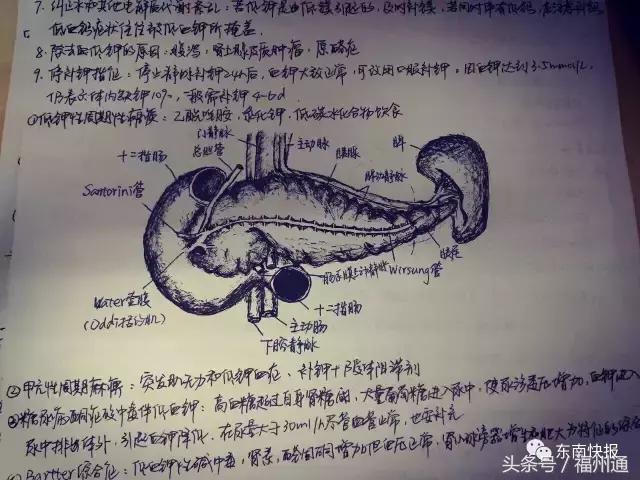 7. 纠正水和其他电解质代谢紊乱：若低钾是由低镁引起的，
低血钙症状往往被低血钾所掩盖.
8. 除去血低钾的原因：腹泻，肾上腺皮质肿瘤，尿崩症
9. 停补钾指征：停止静脉补钾24h后，血钾大致正常，可改用口服补钾。因血钾达到3.5mmol/L，
仍表示体内缺钾10%，一般需补钾4-6d.
①低钾性周期性麻痹：乙酰唑胺，氯化钾，低碳水化合物饮食
门静脉
主动脉
总胆管
十二指肠
胰腺
脾
脾动静脉
Santorini管
胰尾
肠系膜上动静脉
Wirsung管
Vater壶腹
(Oddi括约肌)
十二指肠
主动肠
下腔静脉
②甲亢性周期麻痹：突发肌无力和低钾血症、补钾+β受体阻滞剂
③糖尿病酮症酸中毒伴低血钾：高血糖超过自身肾糖阈，大量葡萄糖进入尿中，使尿渗透压增加，血钾进入
尿中排出体外，引起血钾降低. 在尿量大于30ml/h尽管血管正常，也要补充
④Bartter综合征：低血钾性碱中毒，肾素，醛固酮增加但血压正常，肾小球旁器增生和肥大为特征的综合
东南快报
头条号／福州通